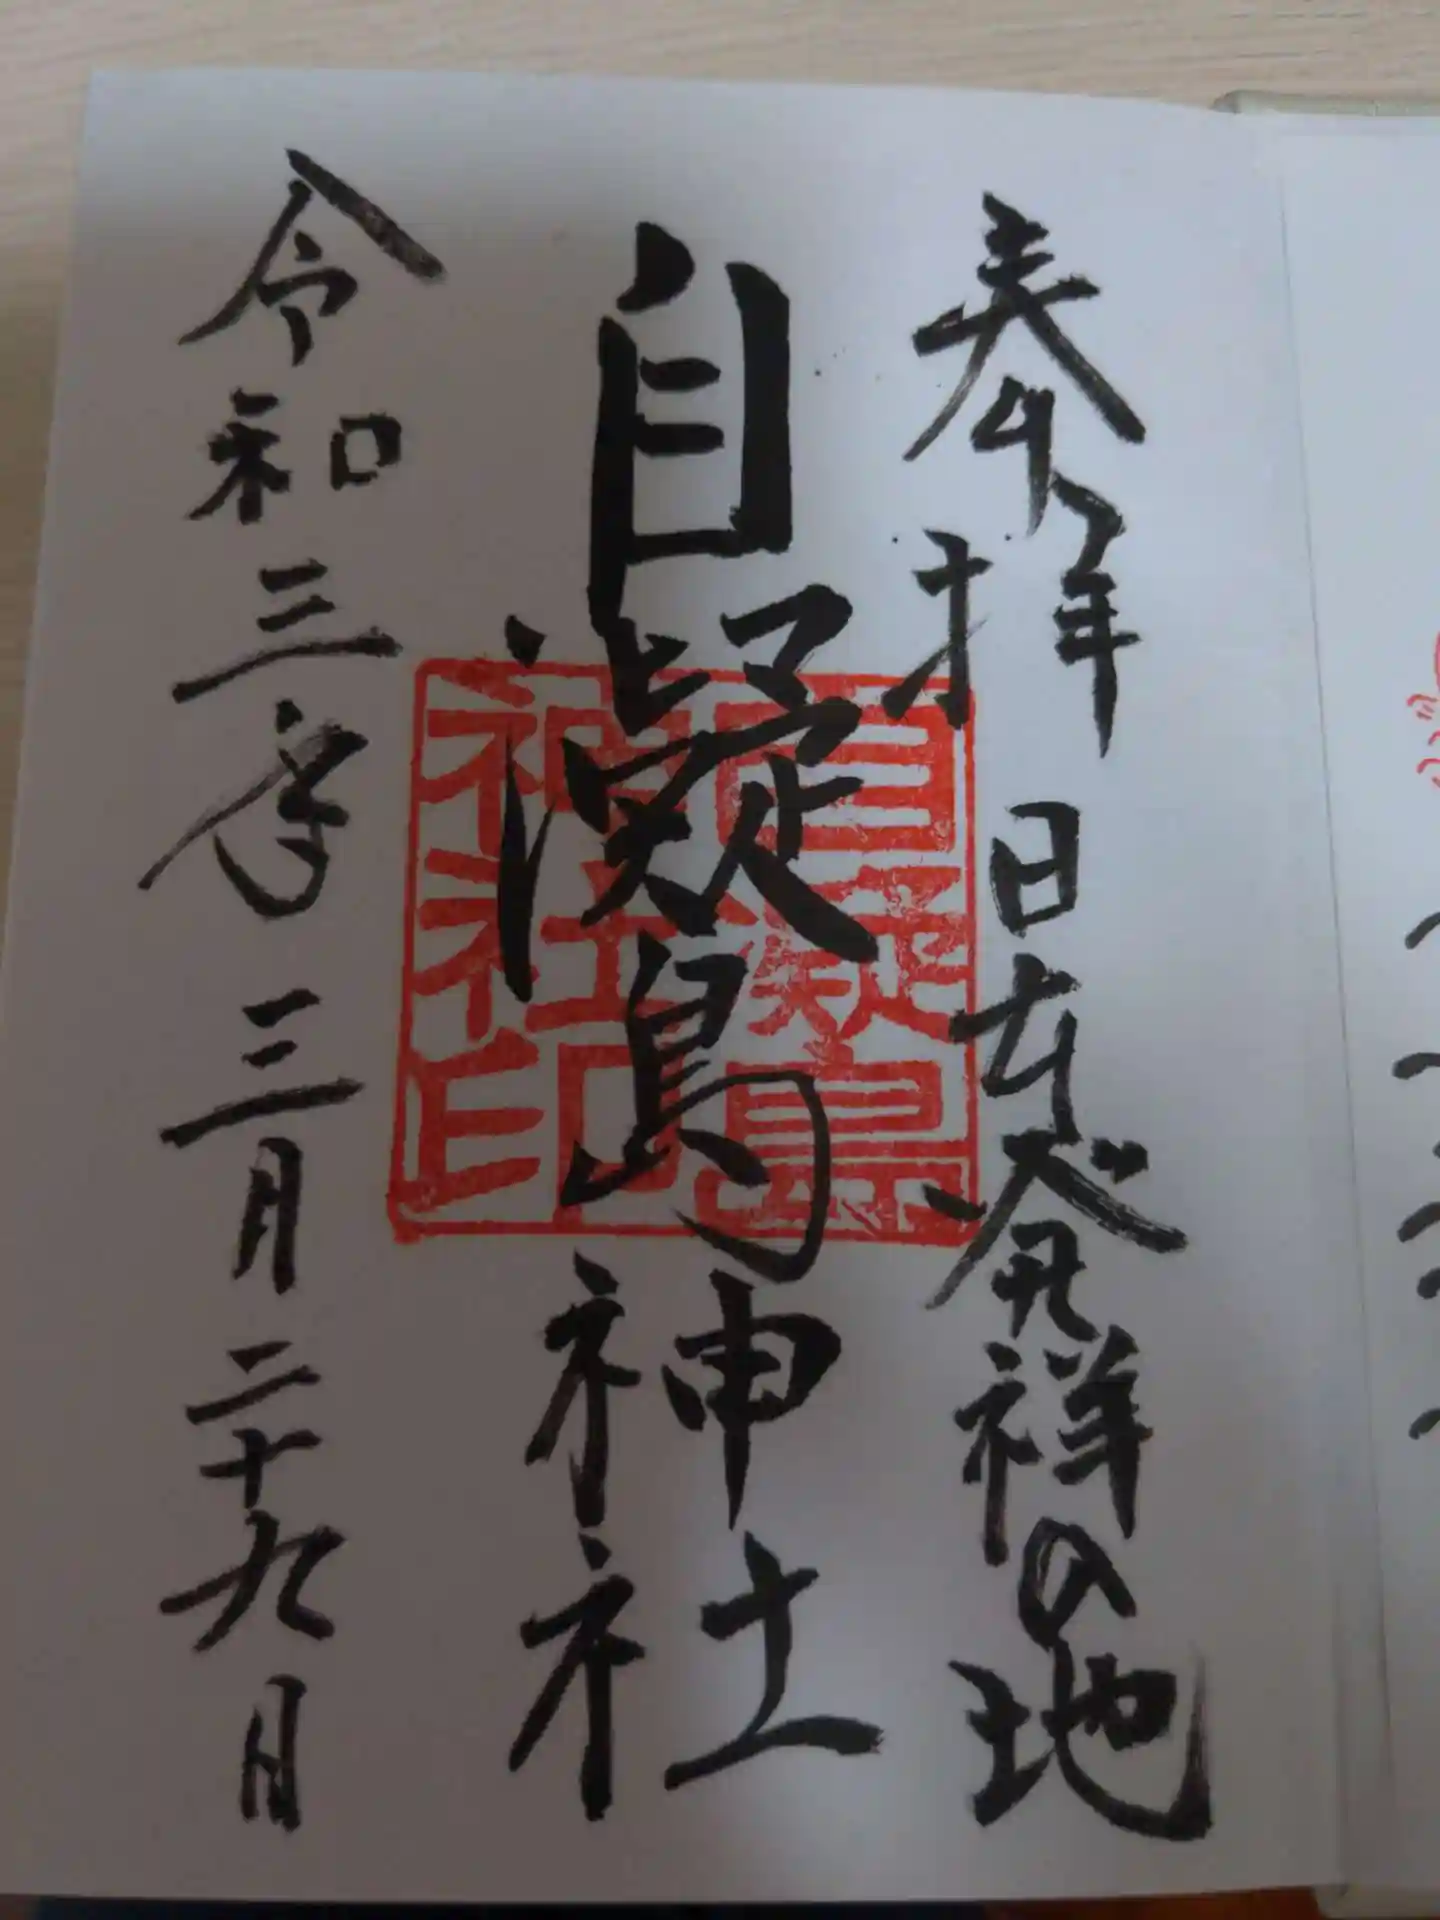 奉拝 日本発祥の地
自凝島神社
自凝島
神社印
令和三年三月二十九日